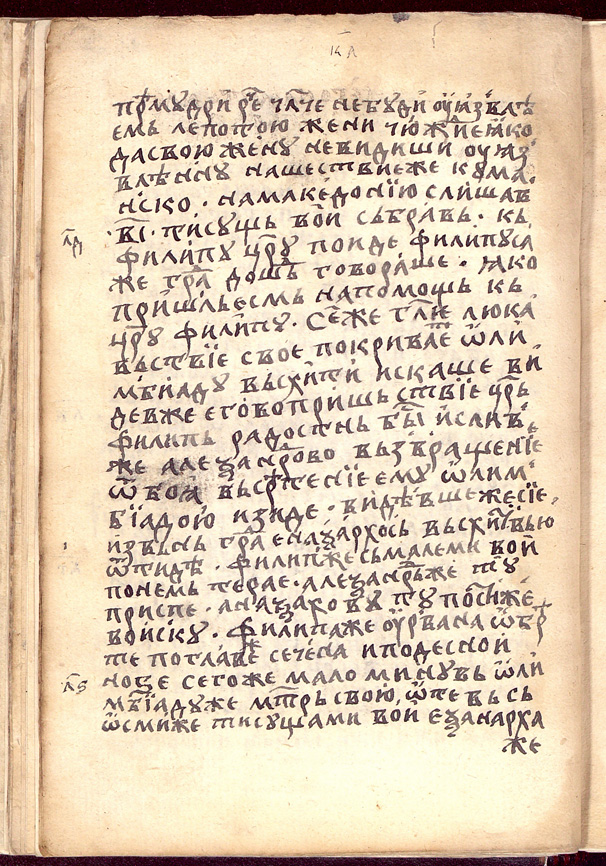 кл
прⷨꙋдри рⷱе чл҃че не бꙋди ѹꙗзвлѣ
емь лепотою жени чюждїе ꙗко
да свою женꙋ не видиши ѹꙗз
влѣннꙋ нашествиеже кꙋма
нско · на македонїю слишав
·в҃і· тисꙋщь вои сьбравь · кь
филипꙋ цр҃ꙋ поиде филипꙋса
же градⷣа дошⷣь говораше · ꙗко
пришльесмь на помощь кь
цр҃ꙋ филипꙋ · се же гл҃ие люка
вьствїе свое покриваеⷮ ѿ ѡли
мбиадꙋ вьсхитити искаше ви
девже его вопришьствїе цр҃ь
филипь радостнь бы
же алеѯандрово вьзвращенїе
вьсрⷮенїе емꙋ ѡлим
бїадою изиде · видѣвше же сїе
извьнь граⷣа анаѯархось вьсхитивью
ѿтидѣ · филипже сь малеми вои
по немь терае · алеѯандрьже тꙋ
приспе · анаѯархо вꙋ тꙋ постиже
воискꙋ · филипаже ѹрвана ѡбрⷮе
те по главе сечена и по десной
нозе сегоже мало минꙋвь ѡли
мбїадꙋ же мт҃рь свою, ѿте вьсь
ѡсмиже тисꙋщами вои
же
л҃д
л҃ѕ